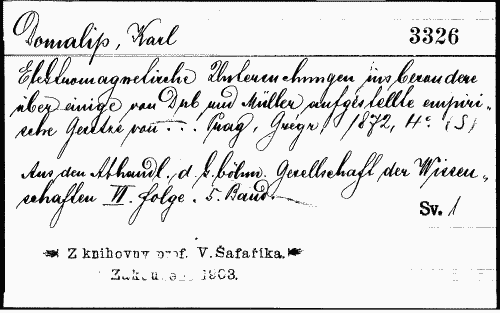 Domalip, Karl 3326
Elektromagnetische Untersuchungen insbesondere
über einige von Dub und Müller aufgestellte empiri-
sche Gesetze von ... Prag, Grégr 1872, 4° (S)
Aus den Abhandl. d. k. böhm. Gesellschaft der Wissen-
schaften VI. folge. 5. Band.
Sv. 1
Z knihovny prof. V. Šafaříka.
Zakoupeno 1903.